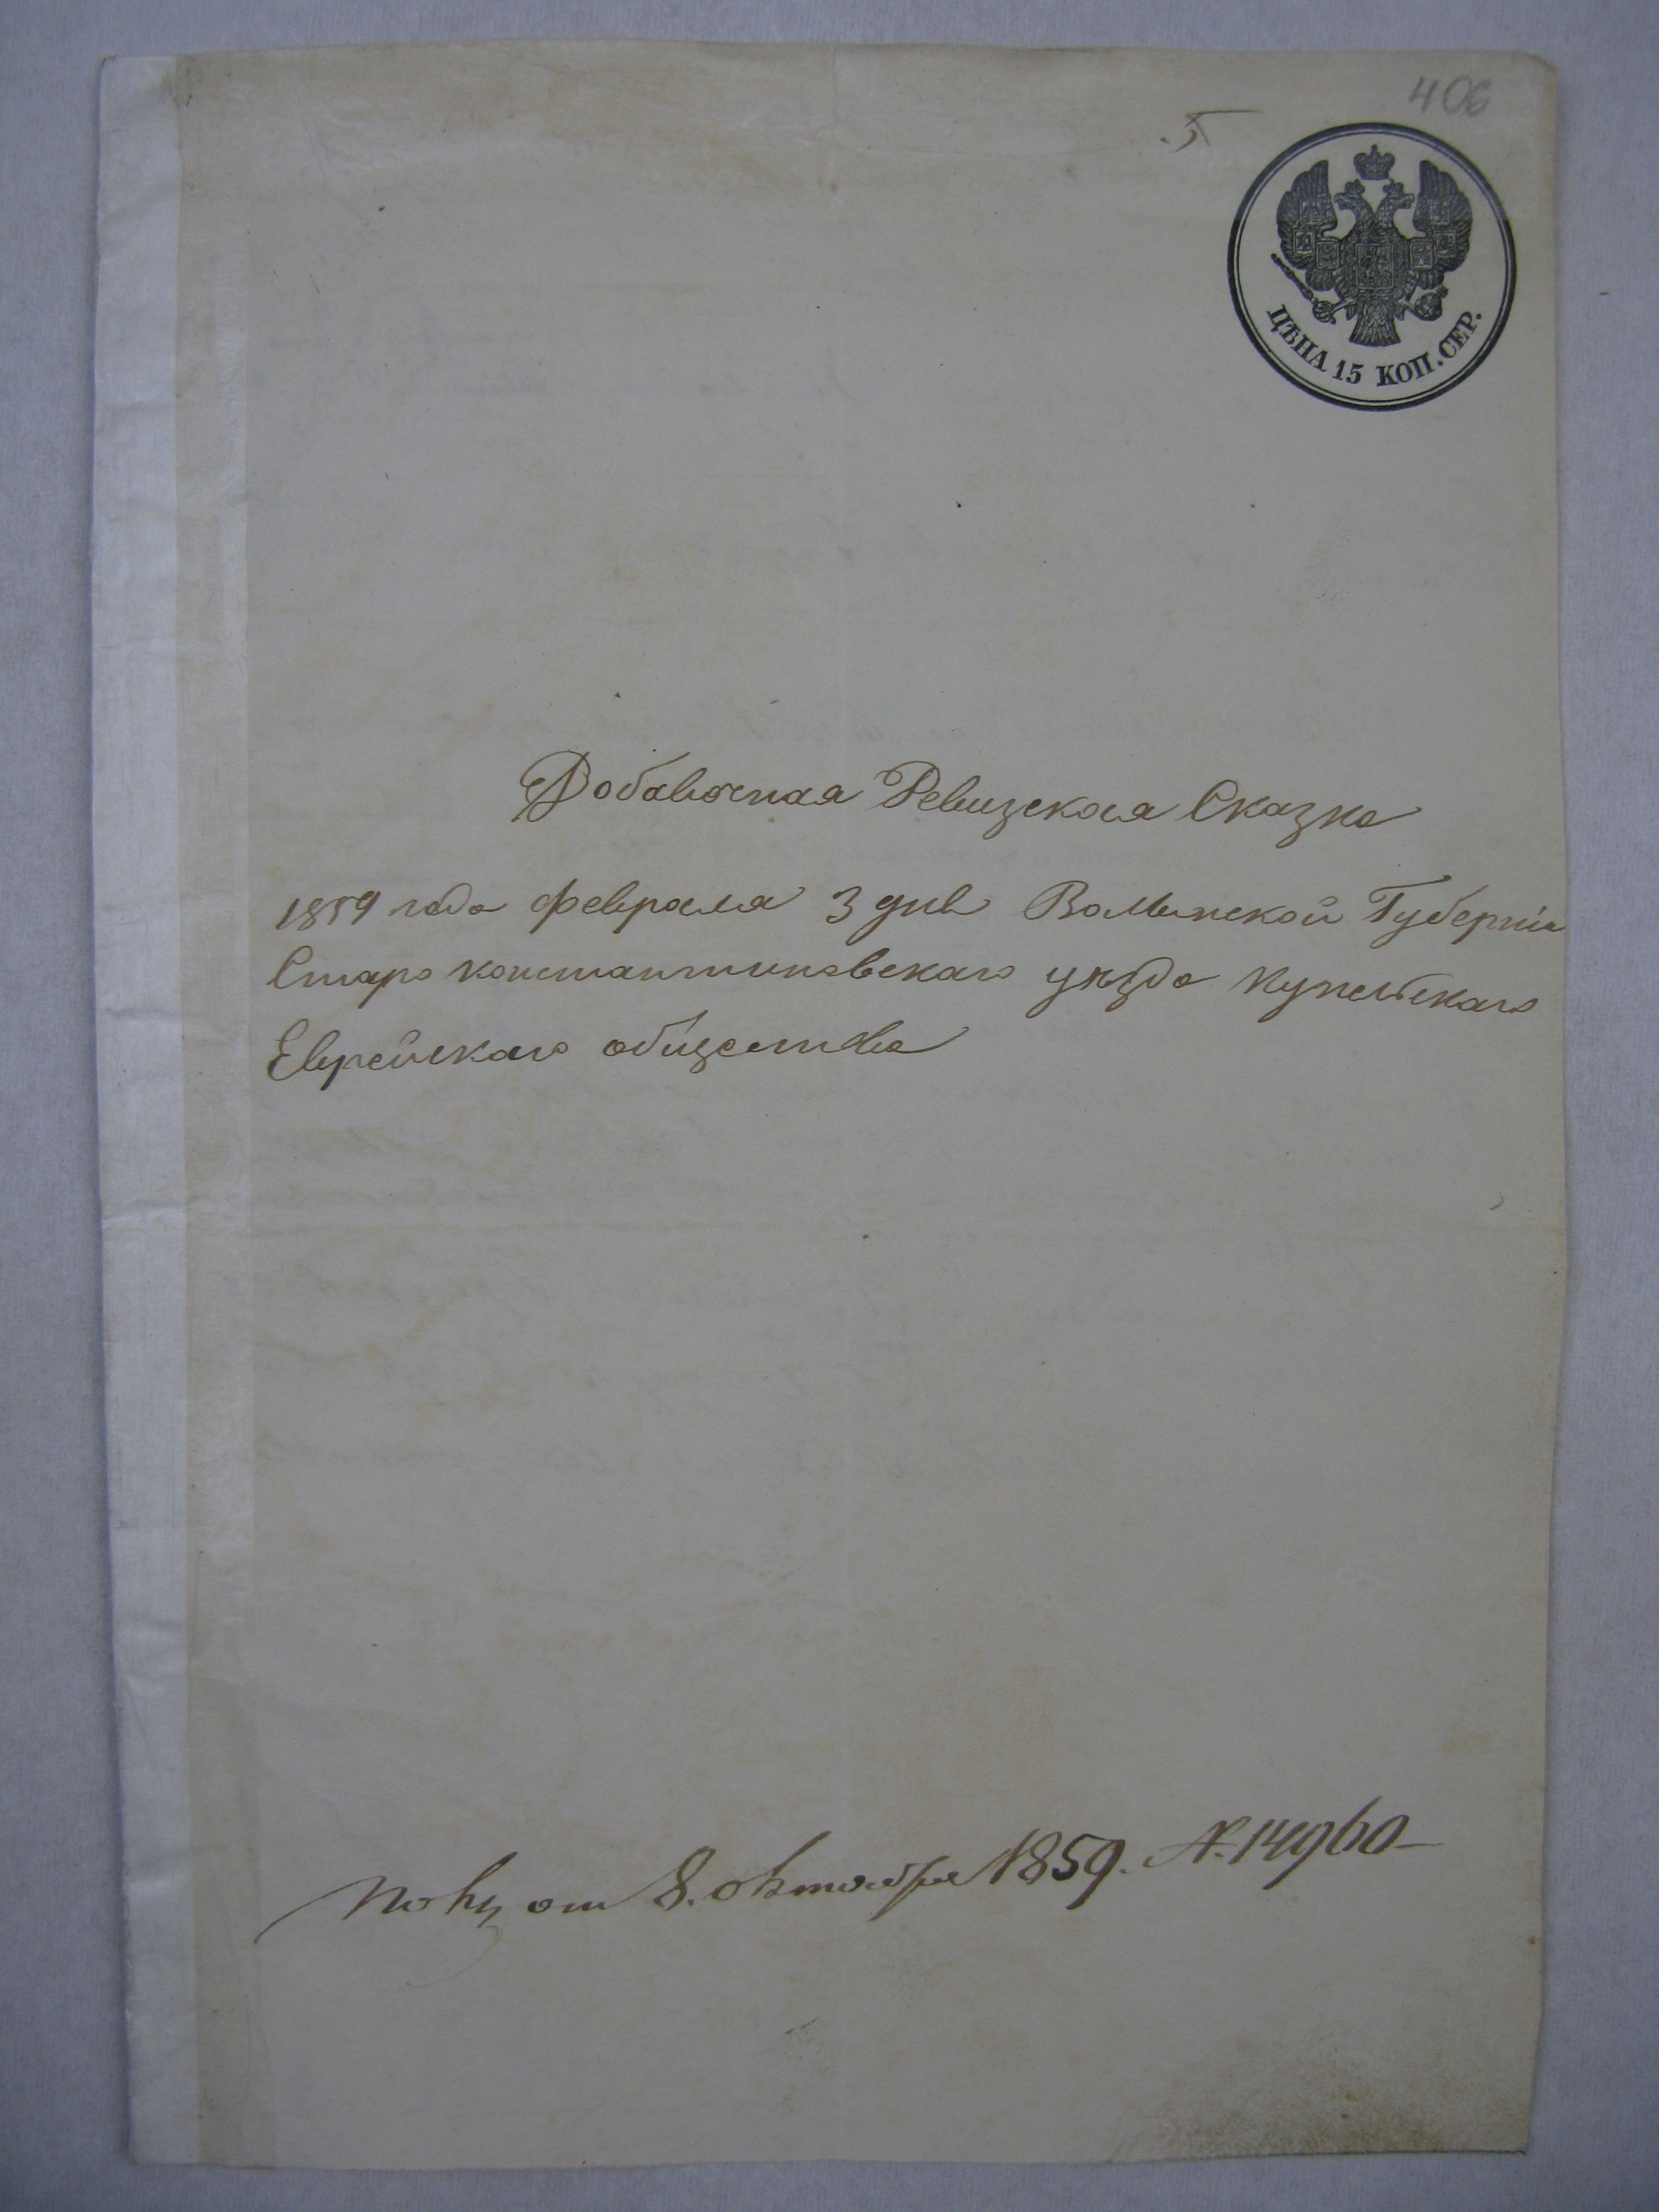 406
ЦѢНА 15 КОП. СЕР.
Добавочная Ревизская Сказка
1859 года февраля 3 дня Волынской Губерніи
Старо константиновскаго уѣзда Купельскаго
Еврейскаго общества
от 8. октября 1859. №. 14960